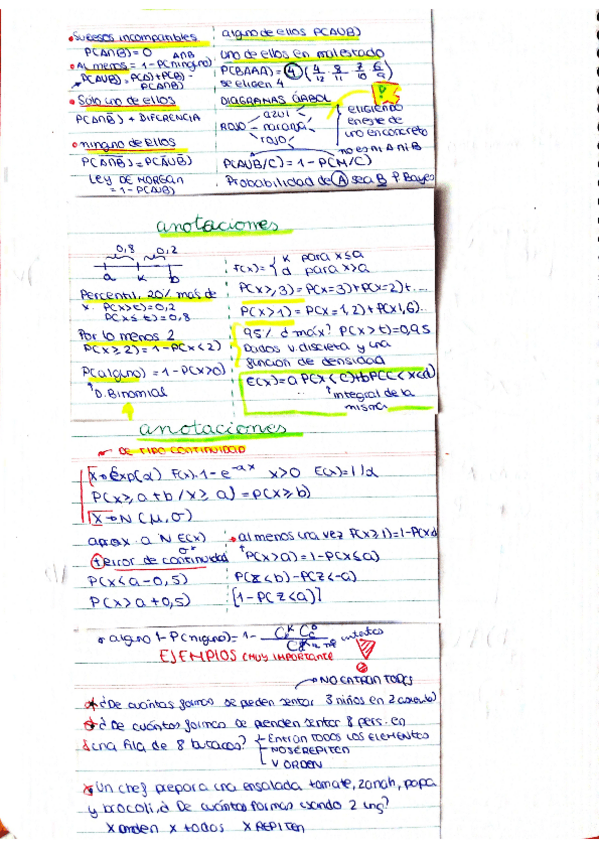 Sucesos incompatibles
P(A∩B) = 0 A∩B
Al menos = 1-P(ninguno)
P(A∪B) = P(A)+P(B)-
P(A∩B)
Solo uno de ellos
P(A∩B) + DIFERENCIA
ninguno de ellos
P(A∩B) = P(A∪B)
LEY DE MORGAN
= 1-P(A∪B)
alguno de ellos P(A∪B)
uno de ellos en mal estado
P(BAAA) = 4 (4/12 · 8/11 · 7/10 · 6/9)
se eligen 4
DIAGRAMAS ÁRBOL
azul
ROJO - naranja
rojo
eligiendo
en este de
uno en concreto
no es ni A ni B
P(A∪B/C) = 1-P(M/C)
Probabilidad de A sea B P Bayes
anotaciones
0,8 0,2
a k b
Percentil, 20% más de
x. P(x>t)=0,2
P(x≤t)=0,8
Por lo menos 2
P(x≥2) = 1-P(x<2)
P(alguno) = 1-P(x>0)
D. Binomial
F(x) = { k para x≤a
d para x>a
P(x≥3) = P(x=3)+P(x=2)+...
P(x>1) = P(x=1,2)+P(x1,6)..
95% d máx? P(x>t)=0,95
Dados v. discreta y una
función de densidad
E(x) = a P(x<c)+bP(c<x<d)
integral de la
misma
anotaciones
DE TIPO CONTINUIDAD
x→Exp(α) F(x)=1-e^-αx x>0 E(x)=1/α
P(x≥a+b/x≥a) = P(x≥b)
x→N(μ,σ)
aprox. a N E(x)
σ
+error de continuidad
P(x<a-0,5)
P(x>a+0,5)
al menos una vez P(x≥1)=1-P(x
P(x>a)=1-P(x≤a)
P(z<b)-P(z<-a)
[1-P(z<a)]
alguno 1-P(ninguno) = 1-
intentos
EJEMPLOS (MUY IMPORTANTE
NO ENTRAN TODOS
¿De cuántas formas se pueden sentar 3 niños en 2
¿De cuántas formas se pueden sentar 8 pers. en
una fila de 8 butacas? - Entran TODOS LOS ELEMENTOS
- NO SE REPITEN
- V ORDEN
Un chef prepara una ensalada tomate, zanah, papa
y brocoli, ¿De cuántas formas usando 2 ing?
x orden x todos x REPITEN